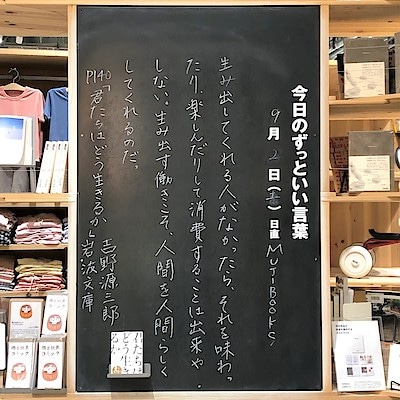 今日のずっといい言葉
9月2日(土)日直 MUJIBOOKS
生み出してくれる人がなかったら、それを味わっ
たり、楽しんだりして消費することは出来や
しない。生み出す働きこそ、人間を人間らしく
してくれるのだ。
P140「君たちはどう生きるか」岩波文庫
吉野源三郎
君たちは
どう生き
るか